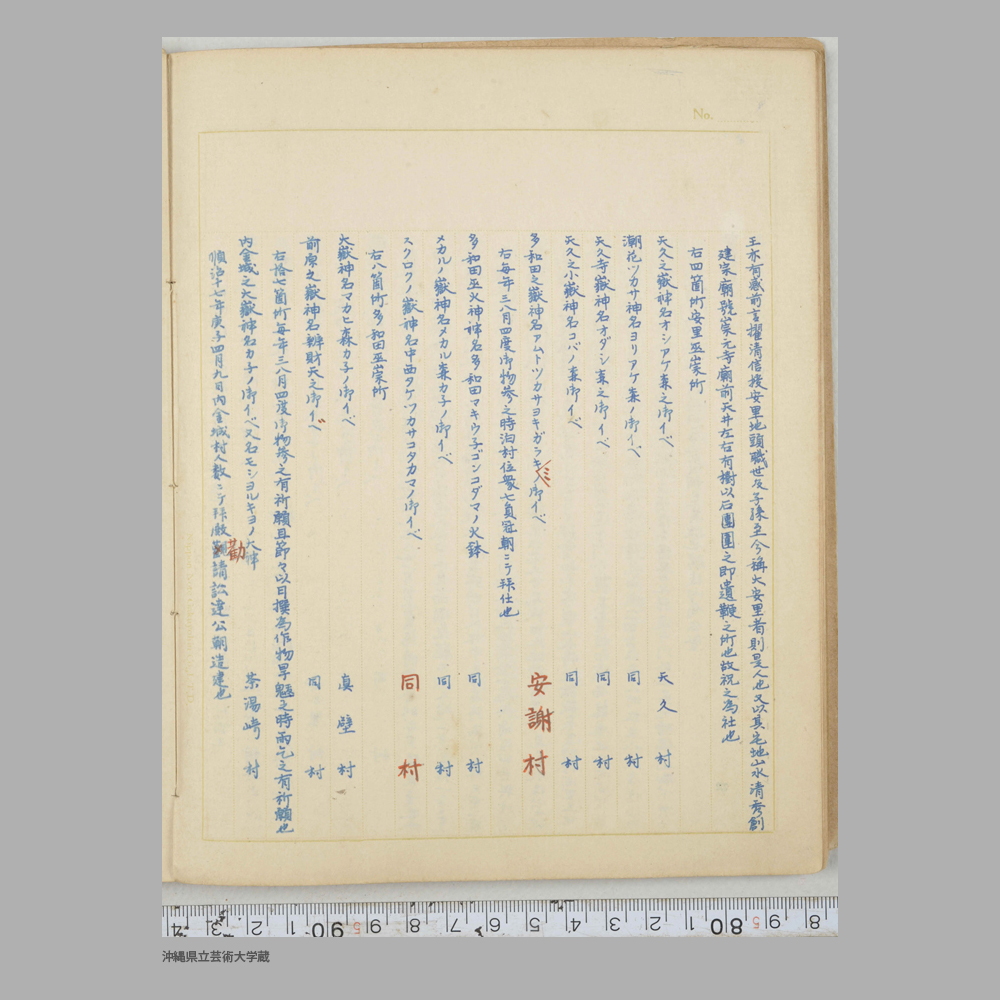 No.
王亦有感前言擢清信後安里地頭職世及子孫至今稱大安里者則是人也又以其宅地山水清秀創
建宗廟號崇元寺廟前天井左右有樹以石圍圍之即遺鞭之所也故祝之為社也
右四箇所安里巫崇所
天久之嶽神名オシアケ森之御イベ 天久村
潮花ツカサ神名ヨリアゲ森ノ御イベ 同村
天久寺嶽神名オダシ森之御イベ 同村
天久之小嶽神名コバノ森御イベ 同村
多和田之嶽神名アムトツカサヨキガラキミノ御イベ 安謝村
右毎年三八月四度御物參之時泊村位衆七員冠朝ニテ拜仕也
多和田巫火神神名多和田マキウ子ゴンコダマノ火鉢 同村
メカルノ嶽神名メカル森カ子ノ御イベ 同村
スクロクノ嶽神名中西タケツカサコタカマノ御イベ 同村
右八箇所多和田巫崇所
大嶽神名マカヒ森カ子ノ御イベ 真壁村
前原之嶽神名辨財天之御イベ 同村
右拾七箇所毎年三八月四度御物參之有祈願且節々以日撰為作物旱魃之時雨乞之有祈願也
内金城之大嶽神名カ子ノ御イベ又名モシヨルキヨノ大神 茶湯崎村
順治十七年庚子四月九日内金城村人数ニテ拜殿勸請訟達公朝造建也
4 3 2 1 90 5 8 7 6 5 4 3 2 1 80 5 9 8
沖縄県立芸術大学蔵